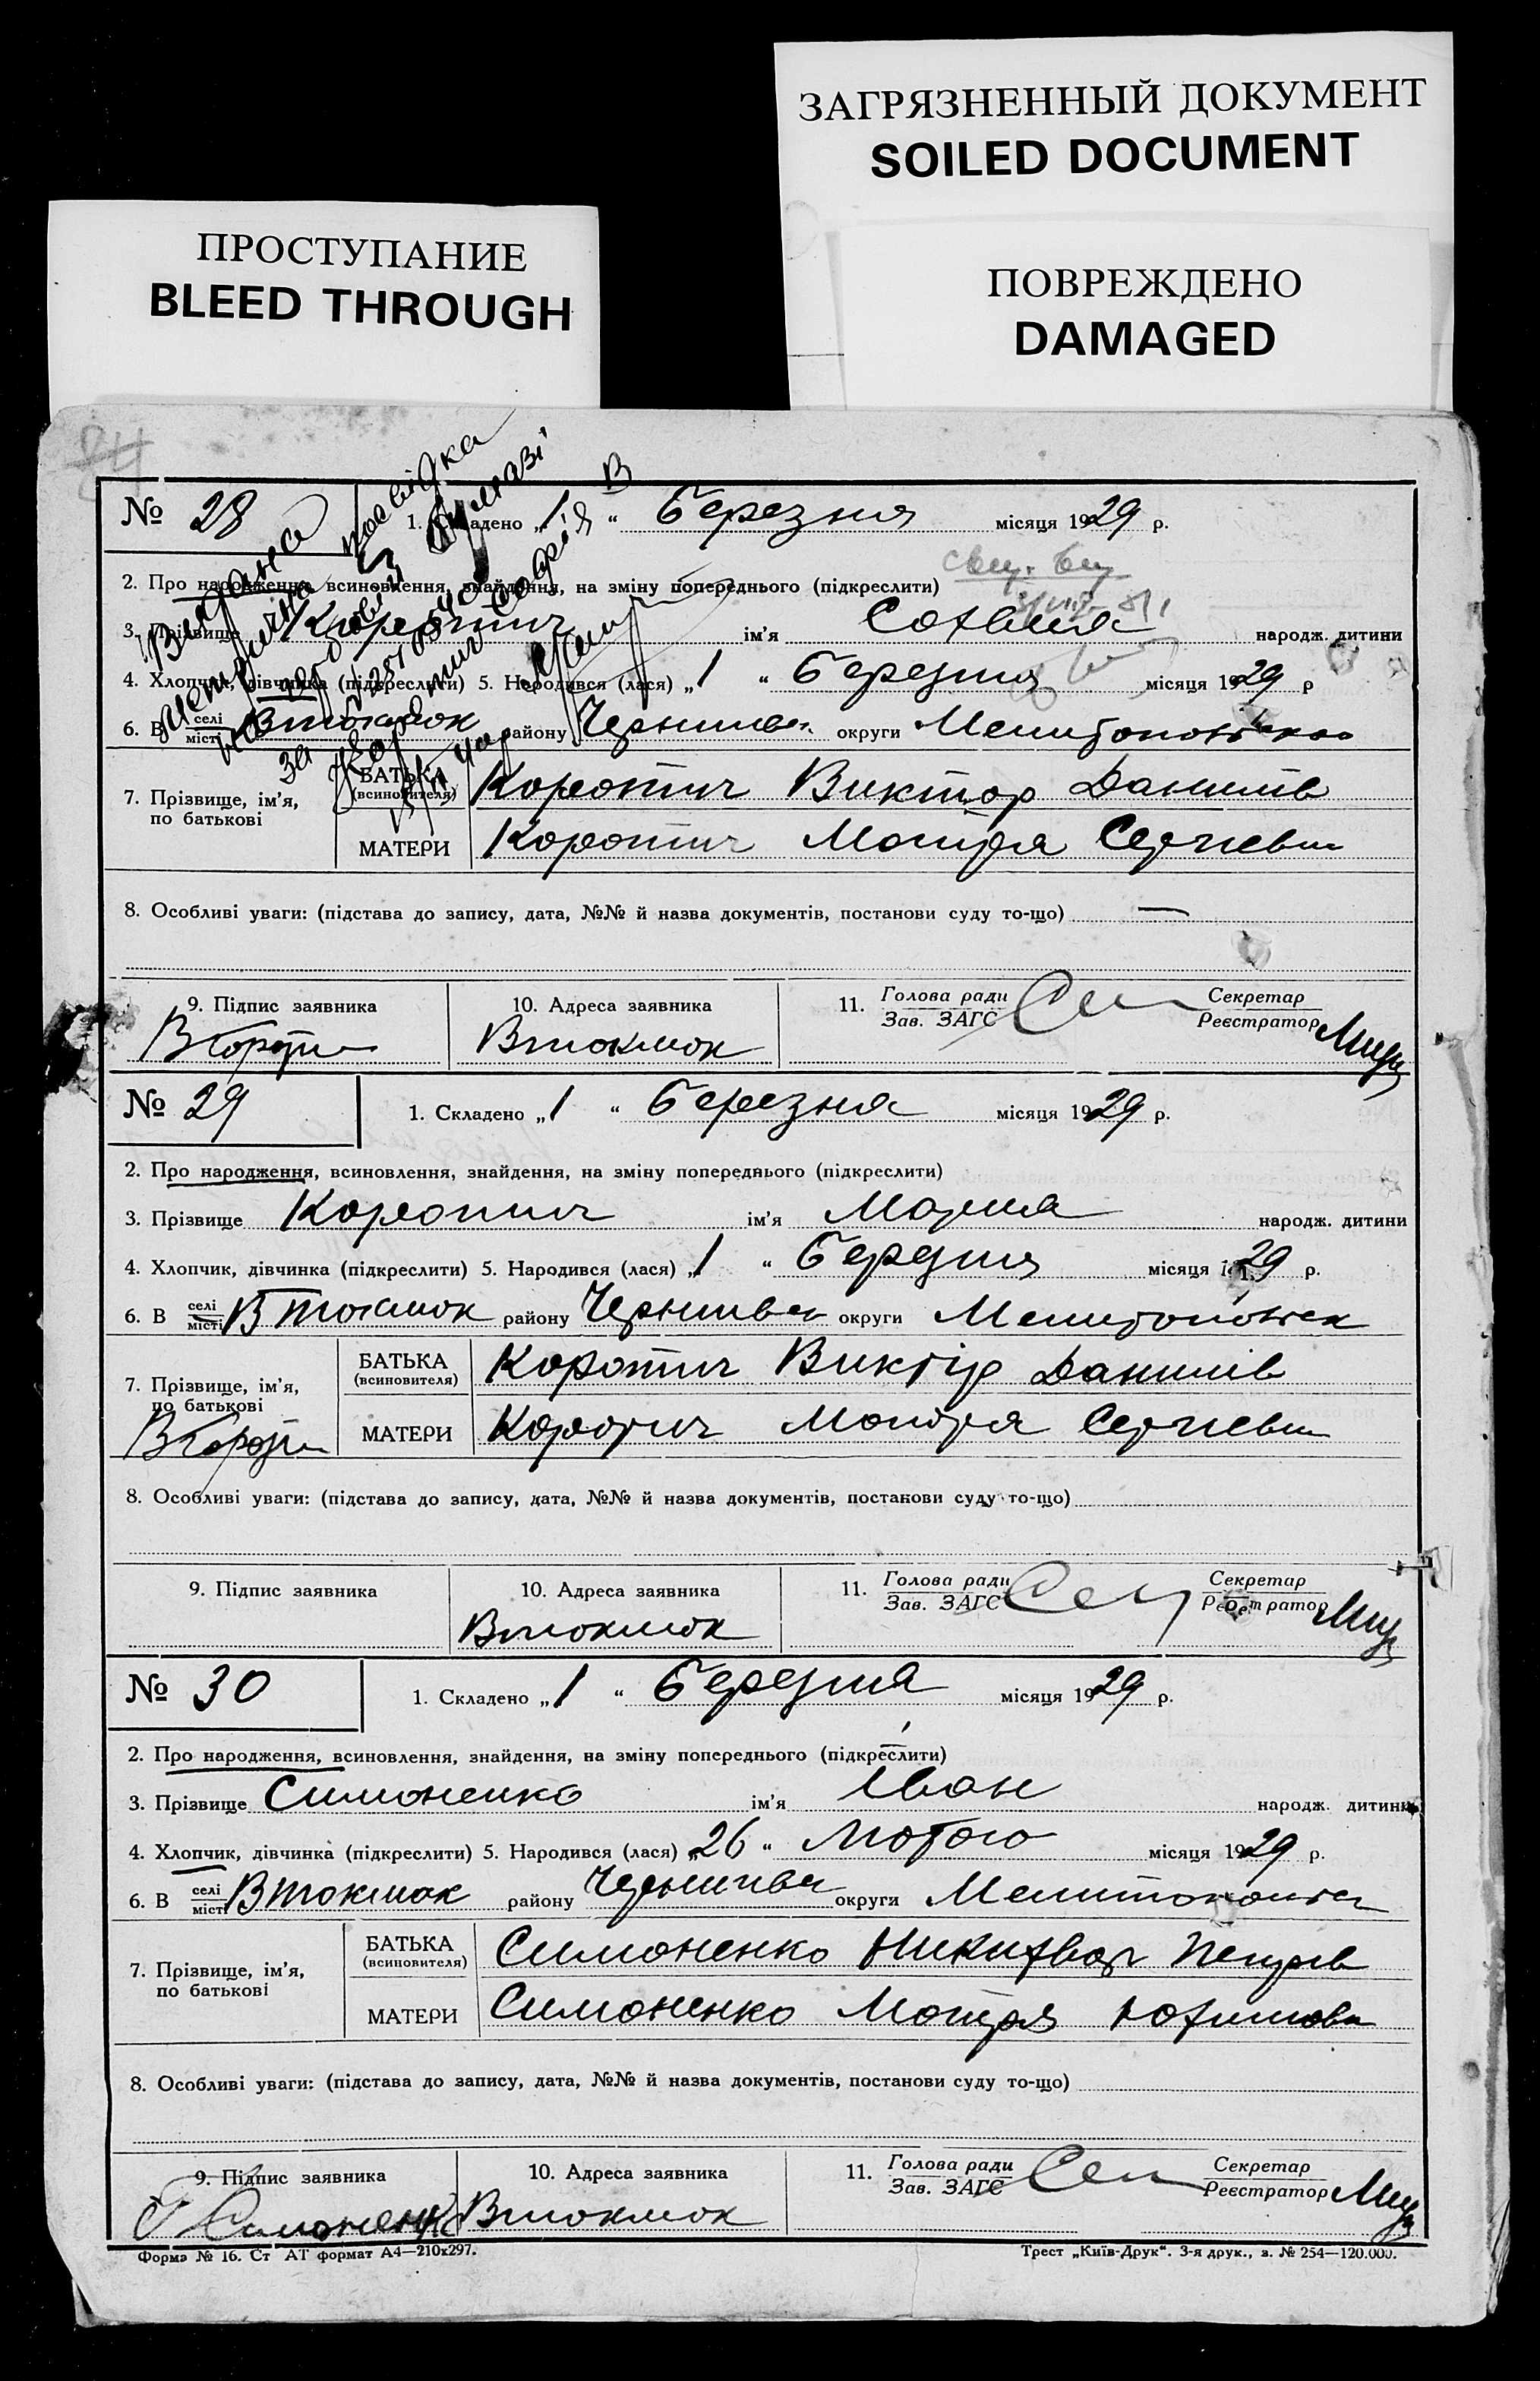 ЗАГРЯЗНЕННЫЙ ДОКУМЕНТ
SOILED DOCUMENT
ПРОСТУПАНИЕ
BLEED THROUGH
ПОВРЕЖДЕНО
DAMAGED
№ 28
1. Складено „1“ Березня місяця 1929 р.
2. Про народження, всиновлення, знайдення, на зміну попереднього (підкреслити)
3. Прізвище Коротич ім'я Софія народж. дитини
4. Хлопчик, дівчинка (підкреслити) 5. Народився (лася) „1“ Березня місяця 1929 р
6. В селі місті В Токмок району Чернигів. округи Мелитопольск
7. Прізвище, ім'я, по батькові
БАТЬКА (всиновителя) Коротич Виктор Данилів
МАТЕРИ Коротич Мотря Сергіевн
8. Особливі уваги: (підстава до запису, дата, №№ й назва документів, постанови суду то-що) —
9. Підпис заявника
10. Адреса заявника
11. Голова ради Зав. ЗАГС
Секретар Реєстратор
В Токмок
№ 29
1. Складено „1“ Березня місяця 1929 р.
2. Про народження, всиновлення, знайдення, на зміну попереднього (підкреслити)
3. Прізвище Коротич ім'я Мария народж. дитини
4. Хлопчик, дівчинка (підкреслити) 5. Народився (лася) „1“ Березня місяця 1929 р.
6. В селі місті В Токмок району Чернигів округи Мелитопольск
7. Прізвище, ім'я, по батькові
БАТЬКА (всиновителя) Коротич Виктір Данилів
МАТЕРИ Коротич Мотря Сергіевн
8. Особливі уваги: (підстава до запису, дата, №№ й назва документів, постанови суду то-що)
9. Підпис заявника
10. Адреса заявника
11. Голова ради Зав. ЗАГС
Секретар Реєстратор
В Токмок
№ 30
1. Складено „1“ Березня місяця 1929 р.
2. Про народження, всиновлення, знайдення, на зміну попереднього (підкреслити)
3. Прізвище Симоненко ім'я Іван народж. дитини
4. Хлопчик, дівчинка (підкреслити) 5. Народився (лася) „26“ Лютого місяця 1929 р.
6. В селі місті В Токмак району Чернигів округи Мелитопольск
7. Прізвище, ім'я, по батькові
БАТЬКА (всиновителя) Симоненко Никифор Петрів
МАТЕРИ Симоненко Мотря Юхимовн
8. Особливі уваги: (підстава до запису, дата, №№ й назва документів, постанови суду то-що)
9. Підпис заявника
10. Адреса заявника
11. Голова ради Зав. ЗАГС
Секретар Реєстратор
Симоненко
В Токмок
Форма № 16. Ст АТ формат А4—210x297.
Трест „Київ-Друк“. 3-я друк., з. № 254—120.000.